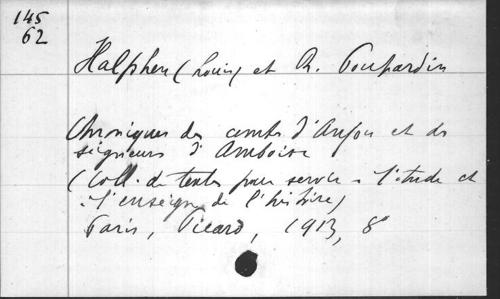 145
62
Halphen (Louis) et R. Poupardin
Chroniques des comtes d'Anjou et des
seigneurs d'Amboise
(Coll. de textes pour servir à l'étude et
à l'enseign. de l'histoire)
Paris, Picard, 1913, 8°